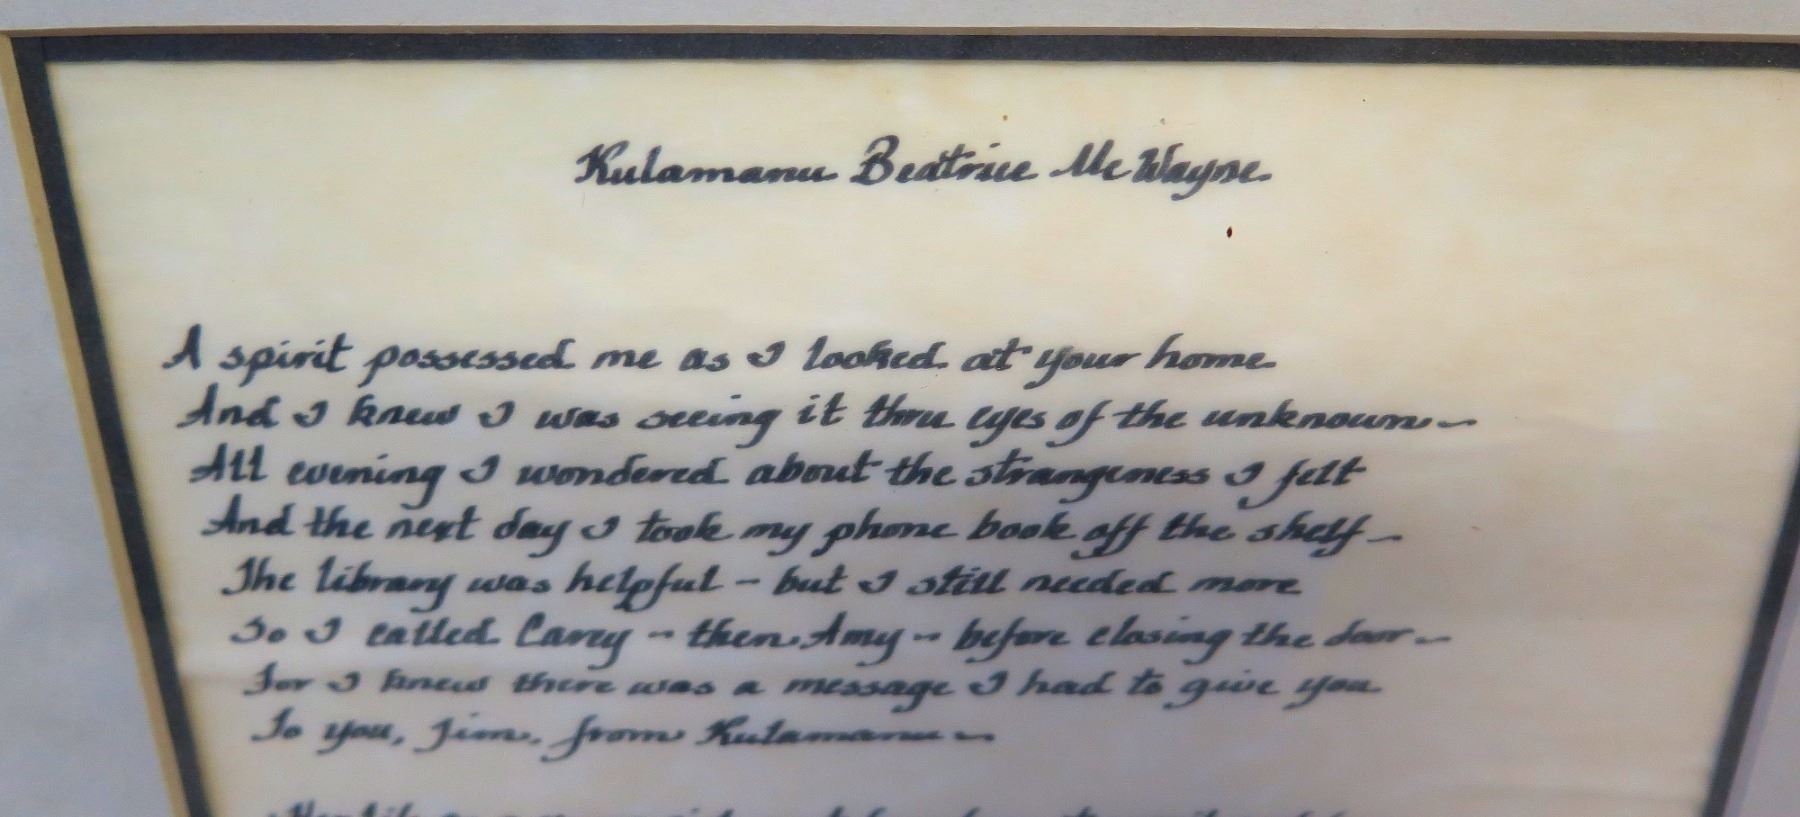 Kulamanu Beatrice Mc Wayne
A spirit possessed me as I looked at your home
And I knew I was seeing it thru eyes of the unknown~
All evening I wondered about the strangeness I felt
And the next day I took my phone book off the shelf~
The library was helpful - but I still needed more
So I called Carey ~ then Amy ~ before closing the door~
For I knew there was a message I had to give you
To you, Jim, from Kulamanu ~